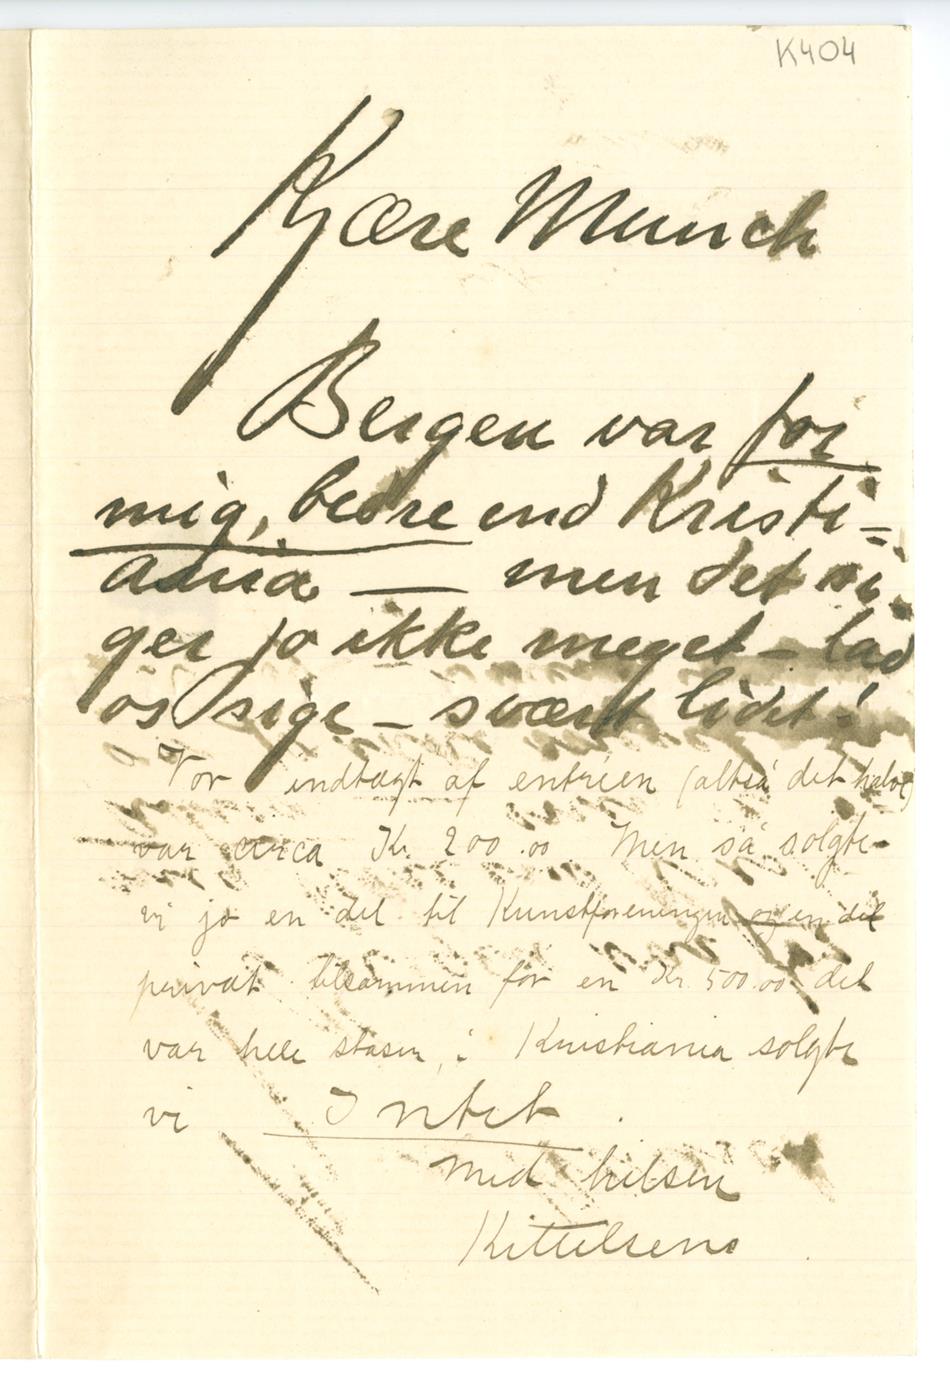 K404
Kjære Munch
Bergen var for
mig, bedre end Kristi-
ania — men det si-
ger jo ikke meget – lad
os sige – svært lidet!
Vor indtægt af entréen (altså det halve)
var circa Kr. 200.00 Men så solgte
vi jo en del til Kunstforeningen og en del
privat tilsammen for en Kr. 500.00 det
var hele stasen, i Kristiania solgte
vi Intet.
Med hilsen
Kittelsen